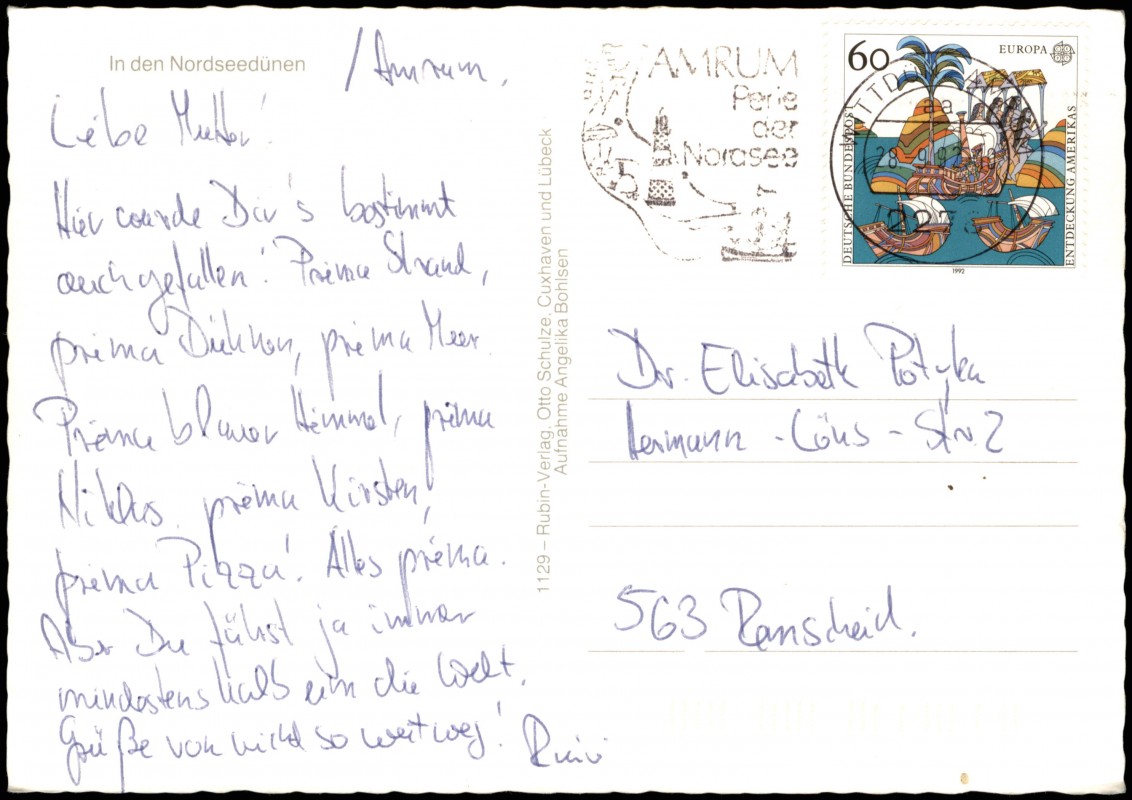 In den Nordseedünen
/Amrum,
Liebe Mutter!
Hier würde Dir's bestimmt
auch gefallen! Prima Strand,
prima Dünen, prima Meer.
Prima blauer Himmel, prima
Niklas, prima Kirsten,
prima Pizza! Alles prima.
Aber Du fährst ja immer
mindestens halb um die Welt.
Grüße von nicht so weit weg!
1129 – Rubin-Verlag, Otto Schulze, Cuxhaven und Lübeck
Aufnahme Angelika Bohlsen
AMRUM
Perle
der
Nordsee
60
EUROPA
DEUTSCHE BUNDESPOST
ENTDECKUNG AMERIKAS
1992
Dr. Elisabeth Potyka
Hermann-Löns-Str. 2
563 Remscheid.